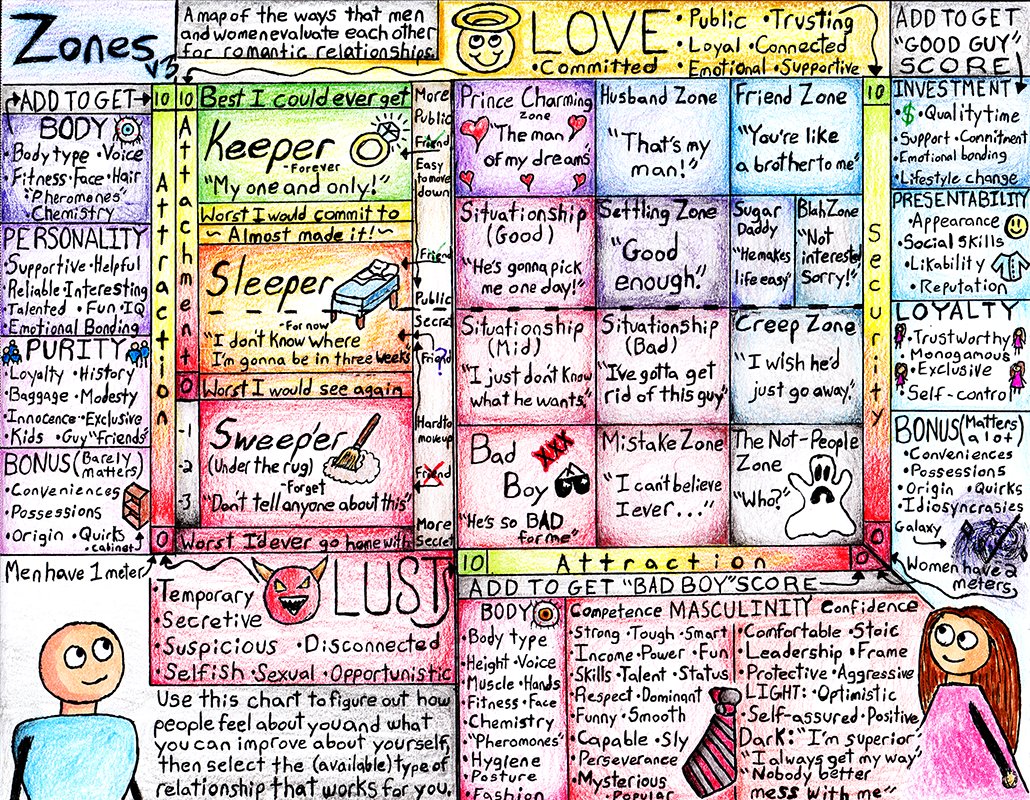 Zones
v3
A map of the ways that men
and women evaluate each other
for romantic relationships.
LOVE
• Public • Trusting
• Loyal • Connected
• Committed • Emotional • Supportive
ADD TO GET
"GOOD GUY"
SCORE
ADD TO GET
10
BODY
• Body type • Voice
• Fitness • Face • Hair
• "Pheromones"
• Chemistry
PERSONALITY
Supportive • Helpful
Reliable • Interesting
Talented • Fun • IQ
Emotional Bonding
PURITY
• Loyalty • History
• Baggage • Modesty
Innocence • Exclusive
• Kids • Guy "Friends"
BONUS (Barely
matters)
• Conveniences
• Possessions
• Origin • Quirks
• cabinet
Men have 1 meter
Attraction
0
10
Attachment
0
-1
-2
-3
Best I could ever get
Keeper
- Forever
"My one and only!"
Worst I would commit to
~ Almost made it! ~
Sleeper
- For now
"I don't know where
I'm gonna be in three weeks"
Worst I would see again
Sweeper
(Under the rug)
- Forget
"Don't tell anyone about this"
Worst I'd ever go home with
More
Public
Friend
Easy
to move
down
Friend
Public
Secret
Friend
?
Hard to
move up
Friend
More
Secret
Prince Charming
zone
"The man
of my dreams"
Husband Zone
"That's my
man!"
Friend Zone
"You're like
a brother to me"
Situationship
(Good)
"He's gonna pick
me one day!"
Settling Zone
"Good
enough."
Sugar
Daddy
"He makes
life easy"
Blah Zone
"Not
interested
Sorry!"
Situationship
(Mid)
"I just don't know
what he wants."
Situationship
(Bad)
"I've gotta get
rid of this guy"
Creep Zone
"I wish he'd
just go away."
Bad
Boy
XXX
"He's so BAD
for me"
Mistake Zone
"I can't believe
I ever..."
The Not-People
Zone
"Who?"
10
Security
0
10
Attraction
0
INVESTMENT
• $ • Quality time
• Support • Commitment
• Emotional bonding
• Lifestyle change
PRESENTABILITY
• Appearance
• Social skills
• Likability
• Reputation
LOYALTY
• Trustworthy
• Monogamous
• Exclusive
• Self-control
BONUS (Matters
a lot)
• Conveniences
• Possessions
• Origin • Quirks
• Idiosyncrasies
Galaxy
Women have 2
meters
LUST
• Temporary
• Secretive
• Suspicious • Disconnected
• Selfish • Sexual • Opportunistic
Use this chart to figure out how
people feel about you and what
you can improve about yourself,
then select the (available) type of
relationship that works for you.
ADD TO GET "BAD BOY" SCORE
BODY
• Body type
• Height • Voice
• Muscle • Hands
• Fitness • Face
• Chemistry
• "Pheromones"
• Hygiene
• Posture
• Fashion
Competence MASCULINITY Confidence
• Strong • Tough • Smart
Income • Power • Fun
Skills • Talent • Status
• Respect • Dominant
• Funny • Smooth
• Capable • Sly
• Perseverance
• Mysterious
• Popular
• Comfortable • Stoic
• Leadership • Frame
• Protective • Aggressive
LIGHT: • Optimistic
• Self-assured • Positive
Dark: "I'm superior"
"I always get my way"
"Nobody better
mess with me"